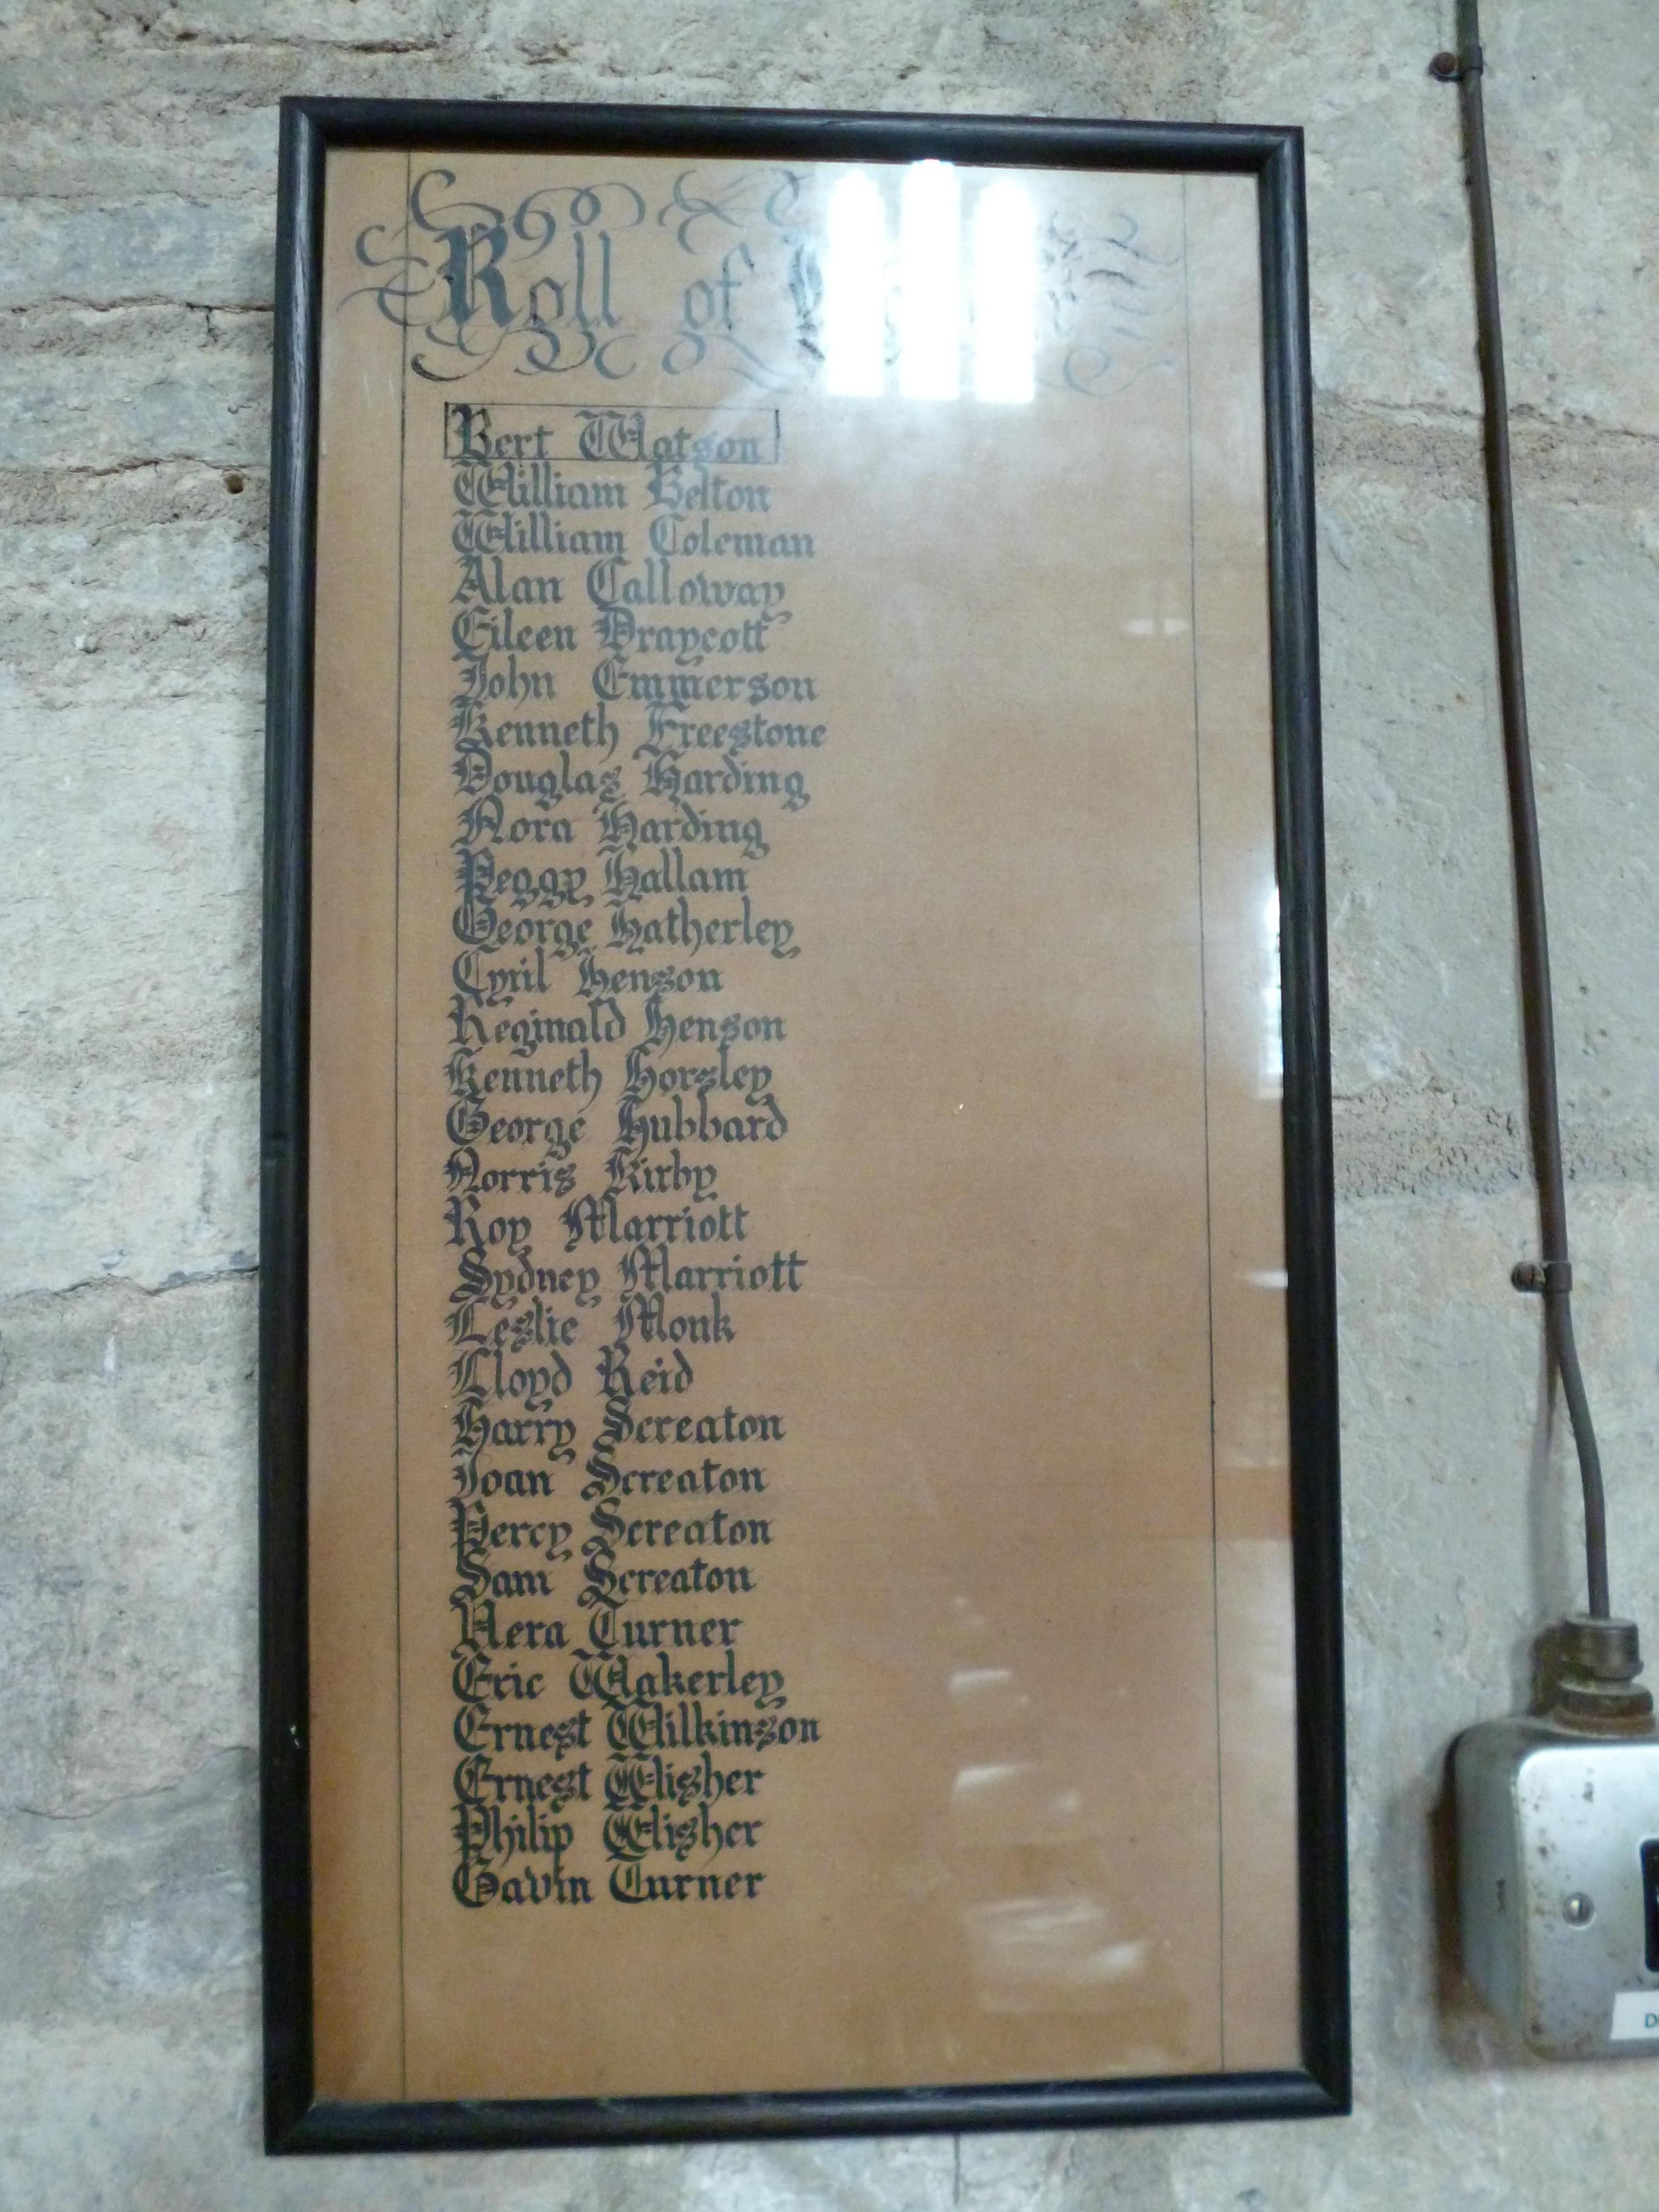 Roll of
Bert Watson
William Belton
William Coleman
Alan Calloway
Eileen Draycott
John Emmerson
Kenneth Freestone
Douglas Harding
Nora Harding
Peggy Hallam
George Hatherley
Cyril Henson
Reginald Henson
Kenneth Horsley
George Hubbard
Norris Kirby
Roy Marriott
Sydney Marriott
Leslie Monk
Lloyd Reid
Harry Screaton
Joan Screaton
Percy Screaton
Sam Screaton
Vera Turner
Eric Wakerley
Ernest Wilkinson
Ernest Wisher
Philip Wisher
Gavin Turner